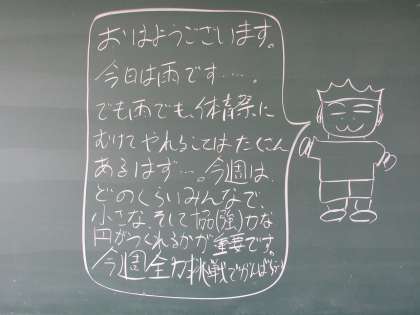 おはようございます。
今日は雨です……。
でも雨でも、体育祭に
むけてやれることはたくさん
あるはず…。今週は、
どのくらいみんなで、
小さな、そして協(強)力な
円がつくれるかが重要です。
今週全力挑戦でがんばろう!